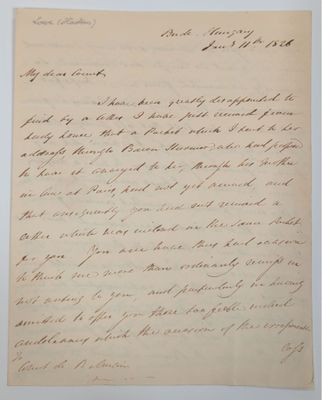 Lowe (Hudson)
Bude Hungary
June 11th 1826
My dear Count,
I have been greatly disappointed to
find by a letter I have just received from
Lady Lowe that a Packet which I sent to her
address through Baron who had promised
to have it conveyed to her, through his Mother
in law at Paris, had not yet arrived, and
that consequently you had not received a
letter which was inclosed in the same Packet
for you. You will have thus had occasion
to think me more than ordinarily remiss in
not writing to you, and particularly in having
omitted to offer you those sincere
condolances which the occasion of the irreparable
loss
To
Count de Balmain